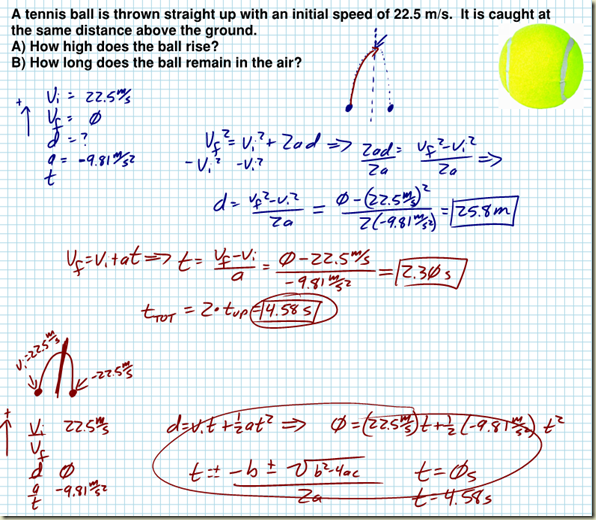 A tennis ball is thrown straight up with an initial speed of 22.5 m/s. It is caught at
the same distance above the ground.
A) How high does the ball rise?
B) How long does the ball remain in the air?
+
Vi = 22.5 m/s
Vf = Ø
d = ?
a = -9.81 m/s²
t
Vf² = Vi² + 2ad => 2ad/2a = Vf² - Vi²/2a =>
-Vi² -Vi²
d = Vf² - Vi²/2a = Ø - (22.5 m/s)²/2(-9.81 m/s²) = 25.8 m
Vf = Vi + at => t = Vf - Vi/a = Ø - 22.5 m/s/-9.81 m/s² = 2.3Ø s
tTOT = 2 · tup = 4.58 s
Vi = 22.5 m/s
-22.5 m/s
+
Vi 22.5 m/s
Vf
d Ø
a -9.81 m/s²
t
d = Vit + ½at² => Ø = (22.5 m/s)t + ½(-9.81 m/s²) t²
t = -b ± √b²-4ac/2a
t = Øs
t = 4.58s